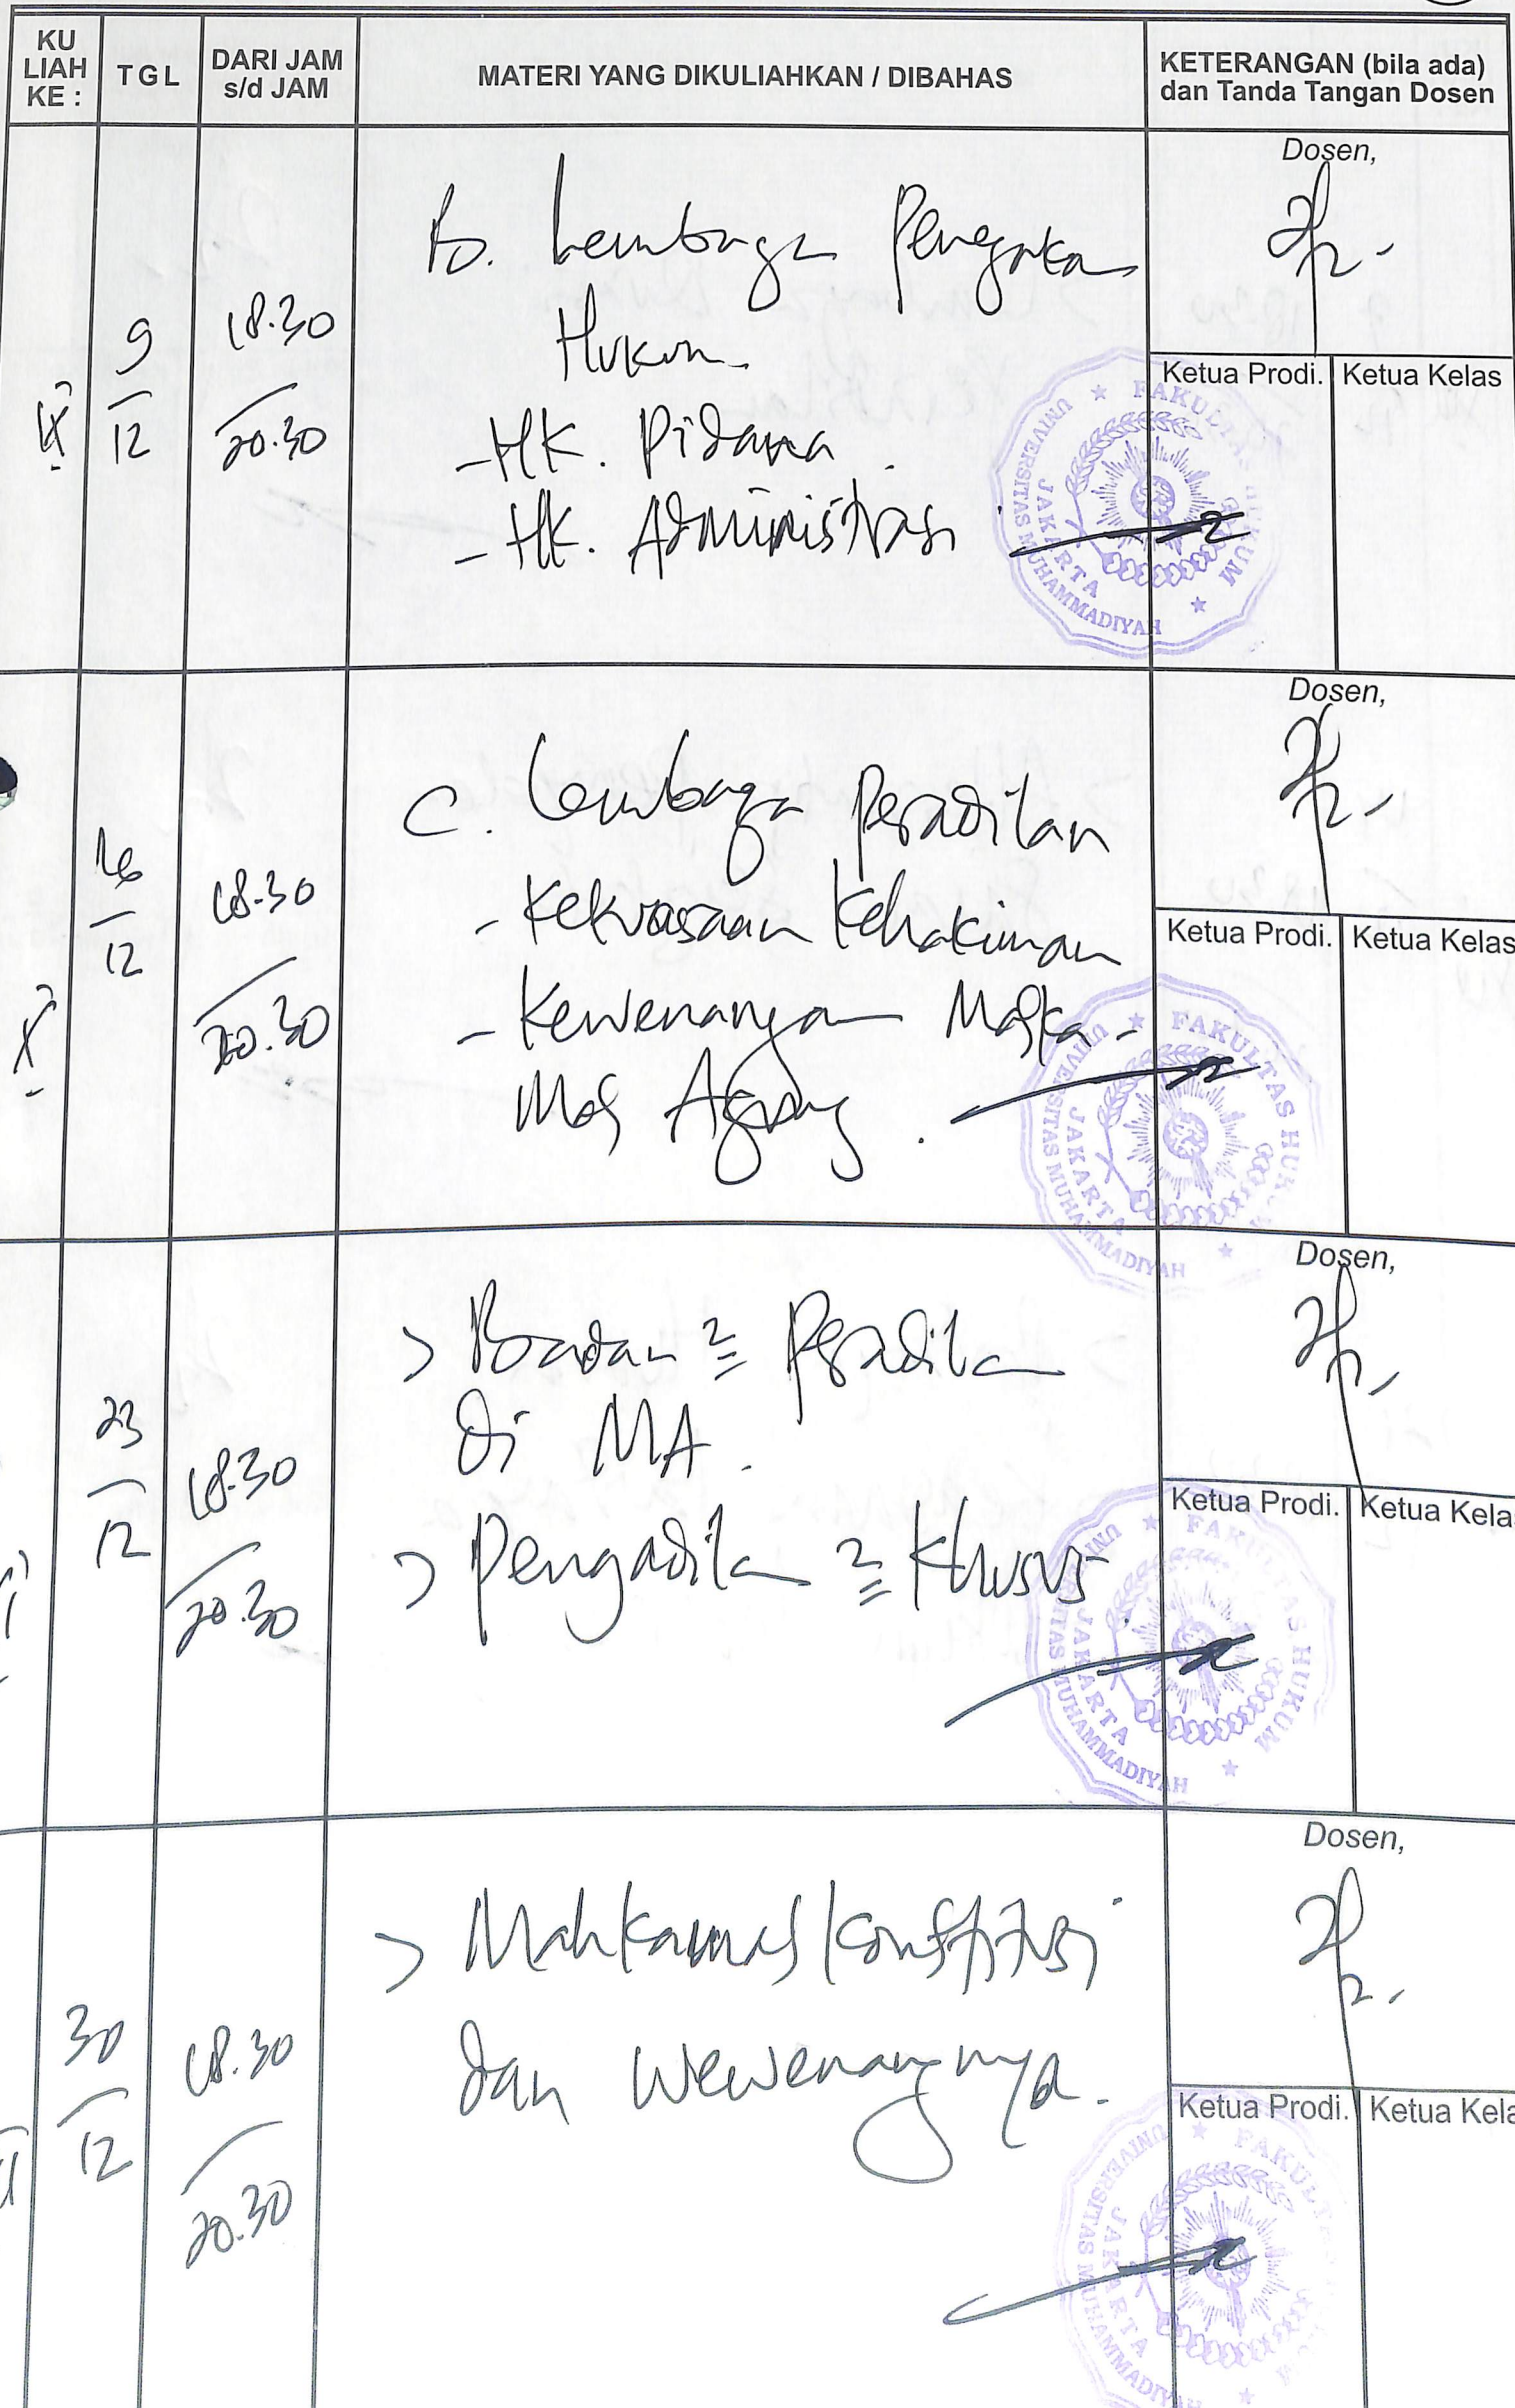 KU LIAH KE :
TGL
DARI JAM s/d JAM
MATERI YANG DIKULIAHKAN / DIBAHAS
KETERANGAN (bila ada) dan Tanda Tangan Dosen
IX
9/12
18.30
20.30
B. Lembaga Penegakan
Hukum
- HK. Pidana.
- HK. Administrasi.
Dosen,
Ketua Prodi.
Ketua Kelas
FAKULTAS HUKUM
UNIVERSITAS MUHAMMADIYAH
JAKARTA
X
16/12
18.30
20.30
C. Lembaga Peradilan
- Kekuasaan Kehakiman
- Kewenangan Mahka-
mah Agung.
Dosen,
Ketua Prodi.
Ketua Kelas
FAKULTAS HUKUM
UNIVERSITAS MUHAMMADIYAH
JAKARTA
23/12
18.30
20.30
> Badan2 Peradilan
di MA.
> Pengadilan2 Khusus.
Dosen,
Ketua Prodi.
Ketua Kela
FAKULTAS HUKUM
UNIVERSITAS MUHAMMADIYAH
JAKARTA
30/12
18.30
20.30
> Mahkamah Konstitusi
dan wewenangnya.
Dosen,
Ketua Prodi.
Ketua Kela
FAKULT
UNIVERSITAS MUHAMMADIYAH
JAKARTA